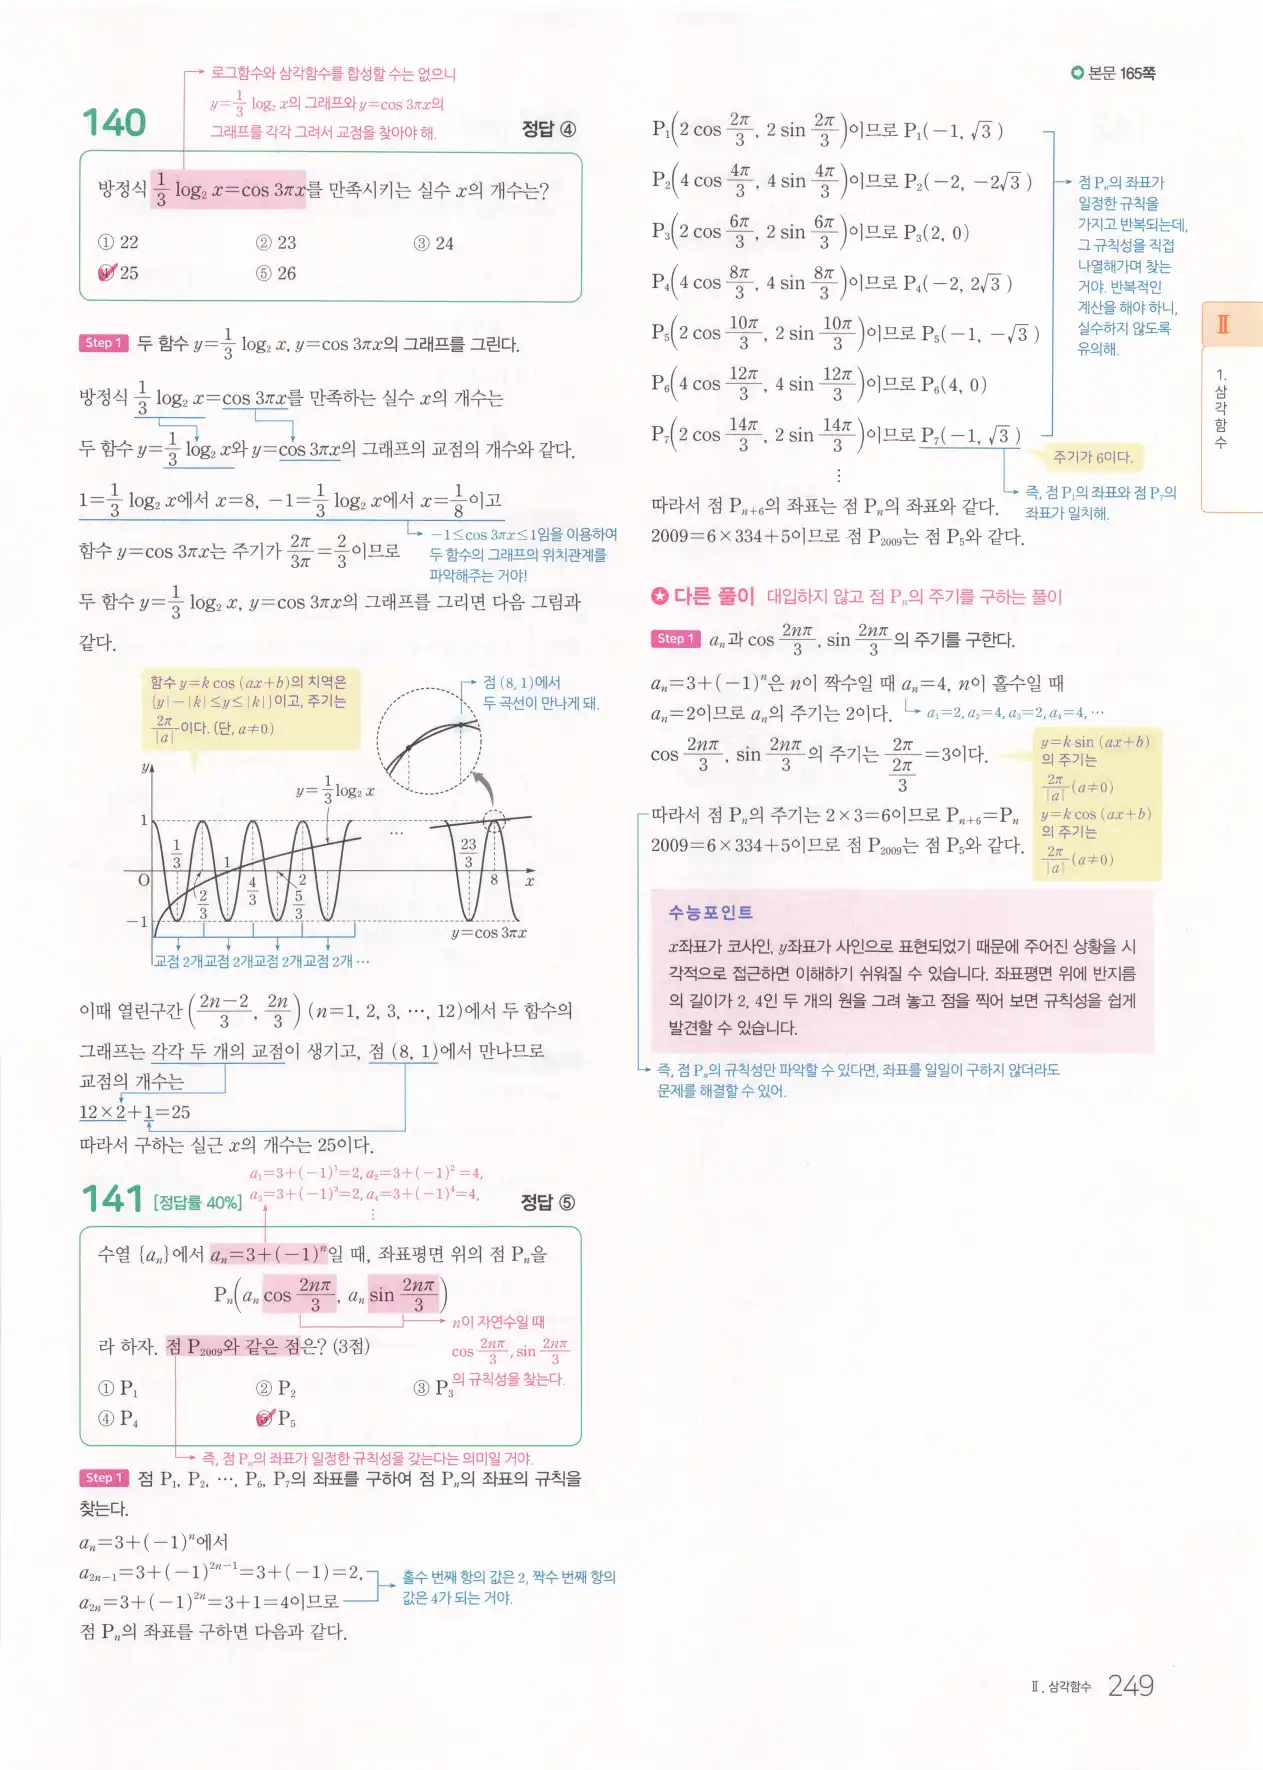 로그함수와 삼각함수를 합성할 수는 없으니
y=1/3 log₂ x의 그래프와 y=cos 3πx의
그래프를 각각 그려서 교점을 찾아야 해.
140 정답 ④
방정식 1/3 log₂ x=cos 3πx를 만족시키는 실수 x의 개수는?
① 22 ② 23 ③ 24
④ 25 ⑤ 26
Step 1 두 함수 y=1/3 log₂ x, y=cos 3πx의 그래프를 그린다.
방정식 1/3 log₂ x=cos 3πx를 만족하는 실수 x의 개수는
두 함수 y=1/3 log₂ x와 y=cos 3πx의 그래프의 교점의 개수와 같다.
1=1/3 log₂ x에서 x=8, −1=1/3 log₂ x에서 x=1/8이고
−1≤cos 3πx≤1임을 이용하여
두 함수의 그래프의 위치관계를
파악해주는 거야!
함수 y=cos 3πx는 주기가 2π/3π=2/3이므로
두 함수 y=1/3 log₂ x, y=cos 3πx의 그래프를 그리면 다음 그림과
같다.
함수 y=k cos (ax+b)의 치역은
{y|−|k|≤y≤|k|}이고, 주기는
2π/|a|이다. (단, a≠0)
점 (8, 1)에서
두 곡선이 만나게 돼.
y
y=1/3 log₂ x
1 ⋯
1/3 1 23/3
O 2/3 4/3 5/3 2 8 x
−1
y=cos 3πx
교점 2개 교점 2개 교점 2개 교점 2개 ⋯
이때 열린구간 ((2n−2)/3, 2n/3) (n=1, 2, 3, ⋯, 12)에서 두 함수의
그래프는 각각 두 개의 교점이 생기고, 점 (8, 1)에서 만나므로
교점의 개수는
12×2+1=25
따라서 구하는 실근 x의 개수는 25이다.
a₁=3+(−1)¹=2, a₂=3+(−1)²=4,
a₃=3+(−1)³=2, a₄=3+(−1)⁴=4,
⋮
141 [정답률 40%] 정답 ⑤
수열 {aₙ}에서 aₙ=3+(−1)ⁿ일 때, 좌표평면 위의 점 Pₙ을
Pₙ(aₙ cos 2nπ/3, aₙ sin 2nπ/3)
라 하자. 점 P₂₀₀₉와 같은 점은? (3점)
n이 자연수일 때
cos 2nπ/3, sin 2nπ/3
의 규칙성을 찾는다.
① P₁ ② P₂ ③ P₃
④ P₄ ⑤ P₅
즉, 점 Pₙ의 좌표가 일정한 규칙성을 갖는다는 의미일 거야.
Step 1 점 P₁, P₂, ⋯, P₆, P₇의 좌표를 구하여 점 Pₙ의 좌표의 규칙을
찾는다.
aₙ=3+(−1)ⁿ에서
a₂ₙ₋₁=3+(−1)²ⁿ⁻¹=3+(−1)=2,
a₂ₙ=3+(−1)²ⁿ=3+1=4이므로
홀수 번째 항의 값은 2, 짝수 번째 항의
값은 4가 되는 거야.
점 Pₙ의 좌표를 구하면 다음과 같다.
본문 165쪽
P₁(2 cos 2π/3, 2 sin 2π/3)이므로 P₁(−1, √3)
P₂(4 cos 4π/3, 4 sin 4π/3)이므로 P₂(−2, −2√3)
P₃(2 cos 6π/3, 2 sin 6π/3)이므로 P₃(2, 0)
P₄(4 cos 8π/3, 4 sin 8π/3)이므로 P₄(−2, 2√3)
P₅(2 cos 10π/3, 2 sin 10π/3)이므로 P₅(−1, −√3)
P₆(4 cos 12π/3, 4 sin 12π/3)이므로 P₆(4, 0)
P₇(2 cos 14π/3, 2 sin 14π/3)이므로 P₇(−1, √3)
⋮
점 Pₙ의 좌표가
일정한 규칙을
가지고 반복되는데,
그 규칙성을 직접
나열해가며 찾는
거야. 반복적인
계산을 해야 하니,
실수하지 않도록
유의해.
주기가 6이다.
즉, 점 P₁의 좌표와 점 P₇의
좌표가 일치해.
따라서 점 Pₙ₊₆의 좌표는 점 Pₙ의 좌표와 같다.
2009=6×334+5이므로 점 P₂₀₀₉는 점 P₅와 같다.
다른 풀이 대입하지 않고 점 Pₙ의 주기를 구하는 풀이
Step 1 aₙ과 cos 2nπ/3, sin 2nπ/3의 주기를 구한다.
aₙ=3+(−1)ⁿ은 n이 짝수일 때 aₙ=4, n이 홀수일 때
aₙ=2이므로 aₙ의 주기는 2이다. a₁=2, a₂=4, a₃=2, a₄=4, ⋯
cos 2nπ/3, sin 2nπ/3의 주기는 2π/(2π/3)=3이다.
따라서 점 Pₙ의 주기는 2×3=6이므로 Pₙ₊₆=Pₙ
2009=6×334+5이므로 점 P₂₀₀₉는 점 P₅와 같다.
y=k sin (ax+b)
의 주기는
2π/|a| (a≠0)
y=k cos (ax+b)
의 주기는
2π/|a| (a≠0)
수능포인트
x좌표가 코사인, y좌표가 사인으로 표현되었기 때문에 주어진 상황을 시
각적으로 접근하면 이해하기 쉬워질 수 있습니다. 좌표평면 위에 반지름
의 길이가 2, 4인 두 개의 원을 그려 놓고 점을 찍어 보면 규칙성을 쉽게
발견할 수 있습니다.
즉, 점 Pₙ의 규칙성만 파악할 수 있다면, 좌표를 일일이 구하지 않더라도
문제를 해결할 수 있어.
Ⅱ
1.
삼
각
함
수
Ⅱ. 삼각함수 249